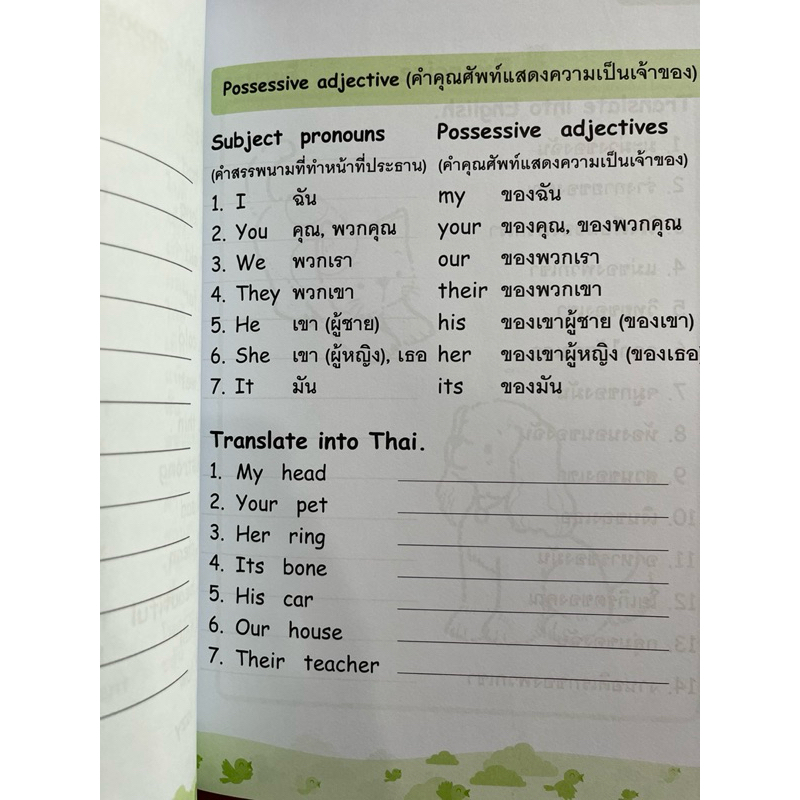 Possessive adjective (คำคุณศัพท์แสดงความเป็นเจ้าของ)
Subject pronouns Possessive adjectives
(คำสรรพนามที่ทำหน้าที่ประธาน) (คำคุณศัพท์แสดงความเป็นเจ้าของ)
1. I ฉัน my ของฉัน
2. You คุณ, พวกคุณ your ของคุณ, ของพวกคุณ
3. We พวกเรา our ของพวกเรา
4. They พวกเขา their ของพวกเขา
5. He เขา (ผู้ชาย) his ของเขาผู้ชาย (ของเขา)
6. She เขา (ผู้หญิง), เธอ her ของเขาผู้หญิง (ของเธอ)
7. It มัน its ของมัน
Translate into Thai.
1. My head
2. Your pet
3. Her ring
4. Its bone
5. His car
6. Our house
7. Their teacher